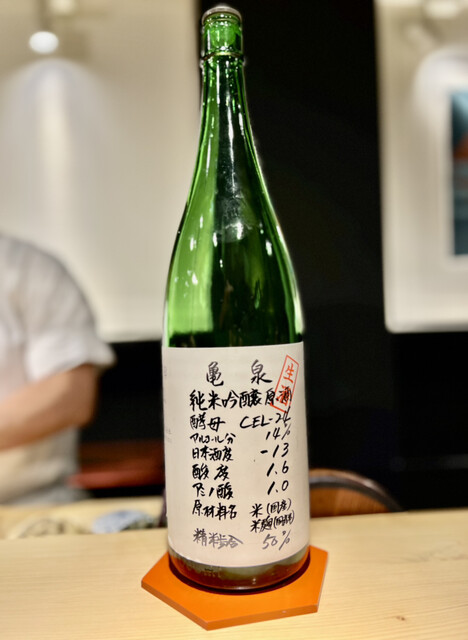 亀泉
生酒
純米吟醸原酒
酵母 CEL-24
アルコール分 14%
日本酒度 -13
酸度 1.6
アミノ酸 1.0
原材料名 米(国産)
米麹(国産米)
精米歩合 50%